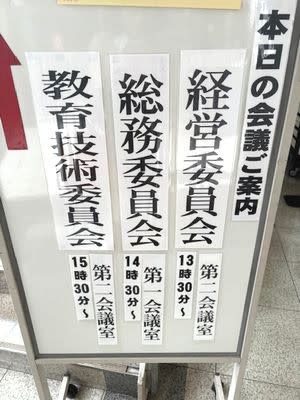 本日の会議ご案内
経営委員会
13時30分～
第二会議室
総務委員会
14時30分～
第一会議室
教育技術委員会
15時30分～
第二会議室